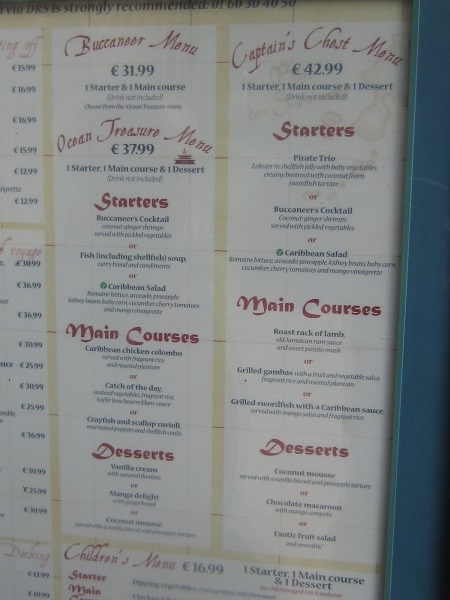 via DRS is strongly recommended: 01 60 30 40 50
ing off
€ 15.99
€ 16.99
€ 16.99
€ 15.99
€ 12.99
€ 12.99
voyage
€ 30.99
€ 36.99
€ 36.99
€ 30.99
€ 25.99
€ 30.99
€ 25.99
€ 36.99
€ 30.99
€ 25.99
€ 30.99
Docking
€ 12.99
€ 10.99
Buccaneer Menu
€ 31.99
1 Starter & 1 Main course
(Drink not included)
Choose from the Ocean Treasure menu
Ocean Treasure Menu
€ 37.99
1 Starter, 1 Main course & 1 Dessert
(Drink not included)
Starters
Buccaneer's Cocktail
coconut-ginger shrimps
served with pickled vegetables
or
Fish (including shellfish) soup,
curry bread and condiments
or
Caribbean Salad
Romaine lettuce, avocado, pineapple,
kidney beans, baby corn, cucumber, cherry tomatoes
and mango vinaigrette
Main Courses
Caribbean chicken colombo
served with fragrant rice
and roasted plantain
or
Catch of the day,
sauteed vegetables, fragrant rice,
kaffir lime beurre blanc sauce
or
Crayfish and scallop ravioli,
marinated peppers and shellfish coulis
Desserts
Vanilla cream
with caramel
or
Mango delight
with gingerbread
or
Coconut mousse,
served with a vanilla biscuit and pineapple tartare
Captain's Chest Menu
€ 42.99
1 Starter, 1 Main course & 1 Dessert
(Drink not included)
Starters
Pirate Trio
Lobster in shellfish jelly with baby vegetables,
creamy beetroot with coconut foam,
swordfish tartare
or
Buccaneer's Cocktail
Coconut-ginger shrimps
served with pickled vegetables
or
Caribbean Salad
Romaine lettuce, avocado, pineapple, kidney beans, baby corn,
cucumber, cherry tomatoes and mango vinaigrette
Main Courses
Roast rack of lamb,
old Jamaican rum sauce
and sweet potato mash
or
Grilled gambas with a fruit and vegetable salsa,
fragrant rice and roasted plantain
or
Grilled swordfish with a Caribbean sauce,
served with mango salsa and fragrant rice
Desserts
Coconut mousse
served with a vanilla biscuit and pineapple tartare
or
Chocolate macaroon
with mango compote
or
Exotic fruit salad
and smoothie
Children's Menu € 16.99
1 Starter, 1 Main course
& 1 Dessert
Starter
Dipping vegetables,
Main